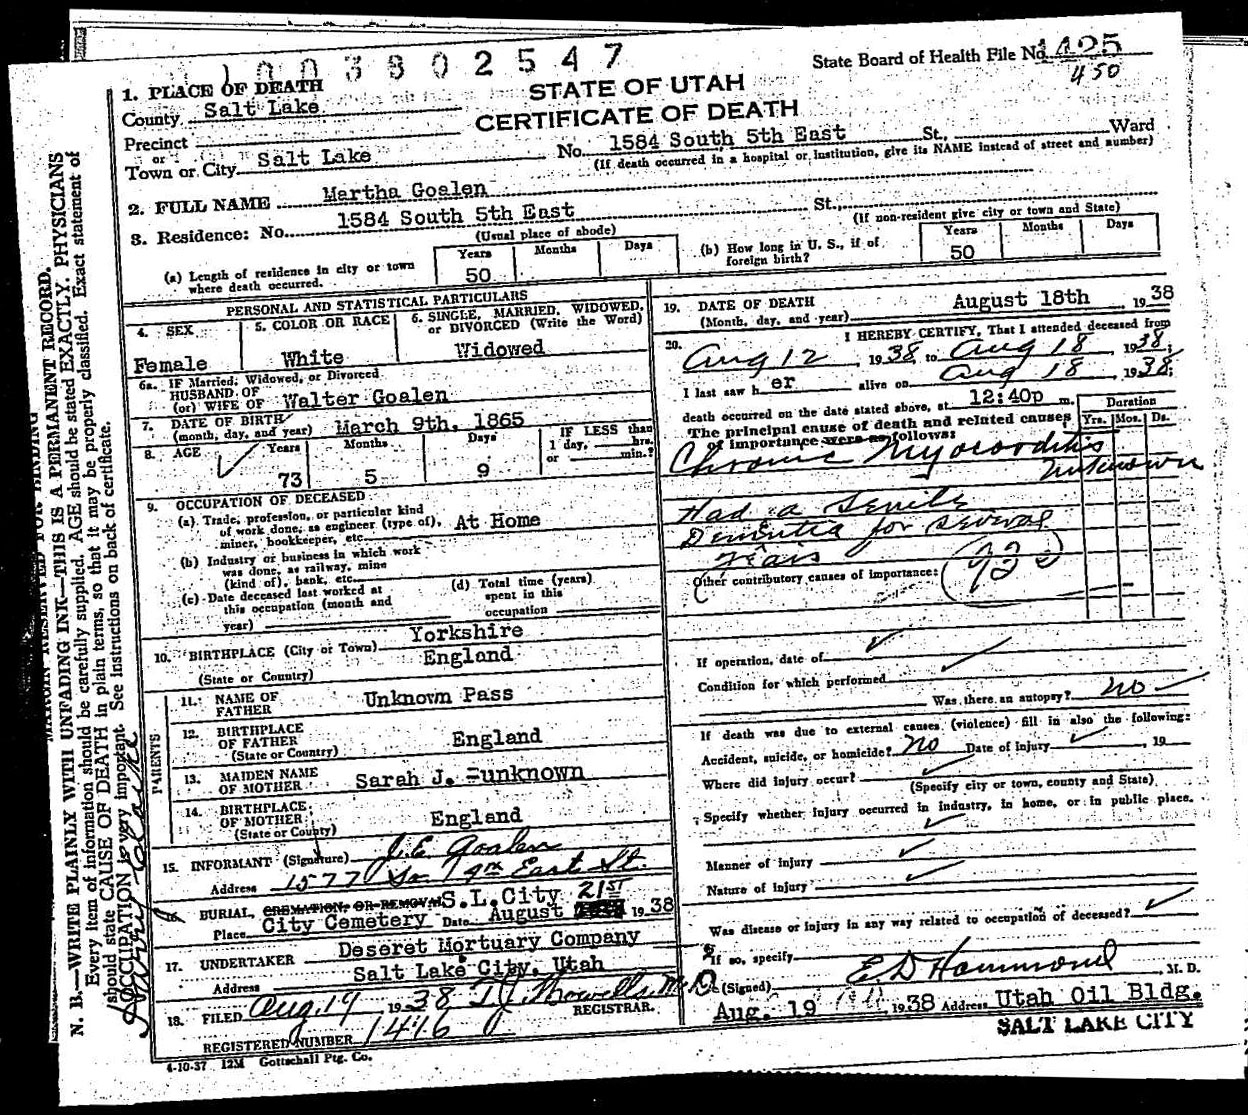 1003802547
State Board of Health File No. 1425
450
STATE OF UTAH
CERTIFICATE OF DEATH
1. PLACE OF DEATH
County Salt Lake
Precinct
or
Town or City Salt Lake No. 1584 South 5th East St., Ward
(If death occurred in a hospital or institution, give its NAME instead of street and number)
2. FULL NAME Martha Goalen
3. Residence: No. 1584 South 5th East St.
(Usual place of abode) (If non-resident give city or town and State)
(a) Length of residence in city or town where death occurred. Years 50 Months Days
(b) How long in U. S., if of foreign birth? Years 50 Months Days
PERSONAL AND STATISTICAL PARTICULARS
4. SEX Female
5. COLOR OR RACE White
6. SINGLE, MARRIED, WIDOWED, or DIVORCED (Write the Word) Widowed
6a. IF Married, Widowed, or Divorced
HUSBAND OF
(or) WIFE OF Walter Goalen
7. DATE OF BIRTH
(month, day, and year) March 9th, 1865
8. AGE Years 73 Months 5 Days 9 IF LESS than 1 day, hrs. or min.?
9. OCCUPATION OF DECEASED
(a) Trade, profession, or particular kind of work done, as engineer (type of), miner, bookkeeper, etc. At Home
(b) Industry or business in which work was done, as railway, mine (kind of), bank, etc.
(c) Date deceased last worked at this occupation (month and year)
(d) Total time (years) spent in this occupation
10. BIRTHPLACE (City or Town) Yorkshire
(State or Country) England
PARENTS
11. NAME OF FATHER Unknown Pass
12. BIRTHPLACE OF FATHER (State or Country) England
13. MAIDEN NAME OF MOTHER Sarah J. -unknown
14. BIRTHPLACE OF MOTHER (State or County) England
15. INFORMANT (Signature) J.E. Goalen
Address 1577 So 9th East St.
16. BURIAL, CREMATION, OR REMOVAL S.L.City
Place City Cemetery Date August 21st 1938
17. UNDERTAKER Deseret Mortuary Company
Address Salt Lake City, Utah
18. FILED Aug. 19 1938 T J Howells M D
REGISTRAR.
REGISTERED NUMBER 1416
4-10-37 12M Gottschall Ptg. Co.
19. DATE OF DEATH
(Month, day, and year) August 18th 1938
20. I HEREBY CERTIFY, That I attended deceased from
Aug 12, 1938, to Aug 18, 1938;
I last saw her alive on Aug 18, 1938;
death occurred on the date stated above, at 12:40p m.
The principal cause of death and related causes of importance were as follows:
Duration
Yrs. Mos. Ds.
Chronic Myocorditis
unknown
Had a Senile
Dementia for several
Years
Other contributory causes of importance:
If operation, date of
Condition for which performed
Was there an autopsy? no
If death was due to external causes (violence) fill in also the following:
Accident, suicide, or homicide? no Date of injury , 19
Where did injury occur?
(Specify city or town, county and State)
Specify whether injury occurred in industry, in home, or in public place.
Manner of injury
Nature of injury
Was disease or injury in any way related to occupation of deceased?
If so, specify
(Signed) E D Hammond, M. D.
Aug. 19 , 1938 Address Utah Oil Bldg.
SALT LAKE CITY
MARGIN RESERVED FOR BINDING
N. B.—WRITE PLAINLY WITH UNFADING INK—THIS IS A PERMANENT RECORD.
Every item of information should be carefully supplied. AGE should be stated EXACTLY. PHYSICIANS
should state CAUSE OF DEATH in plain terms, so that it may be properly classified. Exact statement of
OCCUPATION is very important. See instructions on back of certificate.